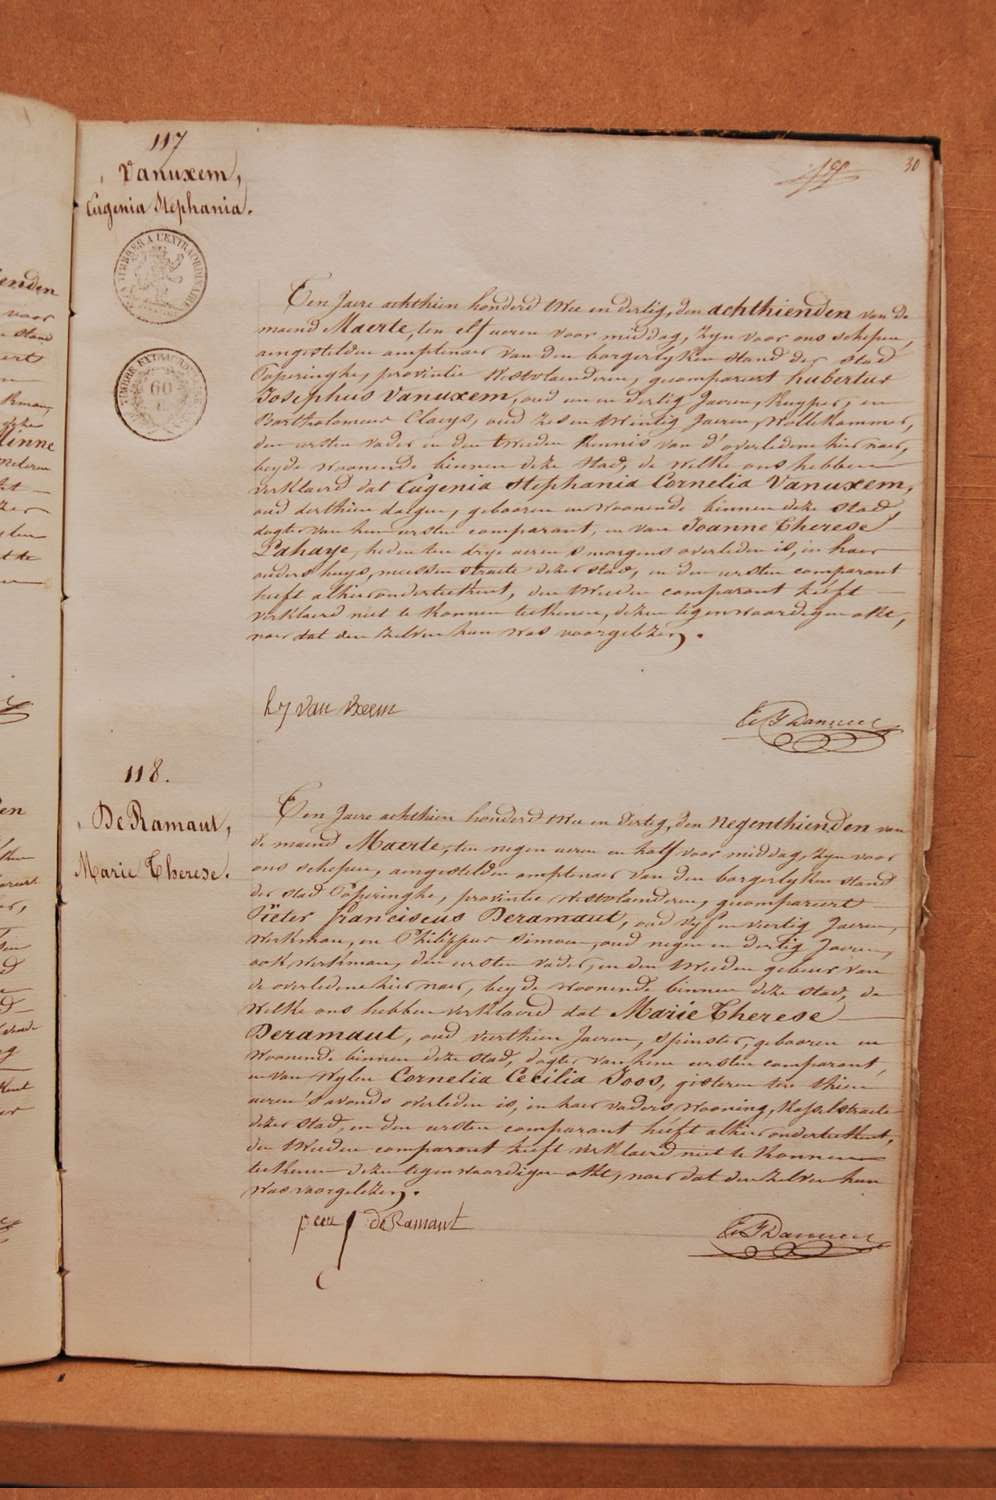 30
117
Vanuxem,
Eugenia Stephania.
TIMBRES A L'EXTRAORDINAIRE
TIMBRE EXTRAORD
60
Ten Jaere achthien honderd twee en dertig, den achthienden van de
maend Maerte, ten elf ueren voor middag, zyn voor ons schepen,
aengestelden amptenaer van den borgerlyken stand der stad
Poperinghe, provintie Westvlaenderen, gecompareert hubertus
Josephus Vanuxem, oud een en dertig Jaeren, Kuyper, en
Bartholomeus Claeys, oud zes en twintig Jaeren, Wollekammer,
den eersten vader en den tweeden kennis van d'overledene hier naer,
beyde woonende binnen deze stad, de welke ons hebben
verklaerd dat Eugenia Stephania Cornelia Vanuxem,
oud derthien daegen, gebooren en woonende binnen deze stad,
dogter van hun eersten comparant, en van Joanne Therese
Lahaye, heden ten drye ueren smorgens overleden is, in haer
ouders huys, meessen straete dezer stad, en den eersten comparant
heeft alhier onderteekent, den tweeden comparant heeft
verklaerd niet te konnen teekenen, dezen tegenwoordigen akte,
naer dat den zelven hun was voorgelezen.
h j van Uxem
118.
De Ramaut,
Marie Therese.
Ten Jaere achthien honderd twee en dertig, den negenthienden van
de maend Maerte, ten negen ueren en half voor middag, zyn voor
ons schepen, aengestelden amptenaer van den borgerlyken stand
der stad Poperinghe, provintie Westvlaenderen, gecompareert
Pieter franciscus Deramaut, oud vyf en viertig Jaeren,
werkman, en Philippus Simoen, oud negen en dertig Jaeren,
ook werkman, den eersten vader, en den tweeden gebeur van
de overledene hier naer, beyde woonende binnen deze stad, de
welke ons hebben verklaerd dat Marie Therese
Deramaut, oud veerthien Jaeren, Spinster, gebooren en
woonende binnen deze stad, dogter van hem eersten comparant,
en van wylen Cornelia Cecilia Joos, gisteren ten thien
ueren 's avonds overleden is, in haer vaders wooning, Kasselstraete
dezer stad, en den eersten comparant heeft alhier onderteekent,
den tweeden comparant heeft verklaerd niet te konnen
teekenen dezen tegenwoordigen akte, naer dat den zelven hun
was voorgelezen.
peer f deRamaut